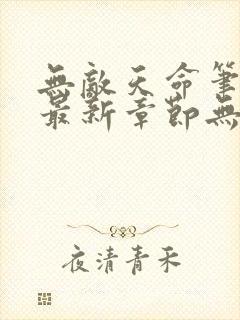 無敵天命筆
最新章節無
夜清青禾